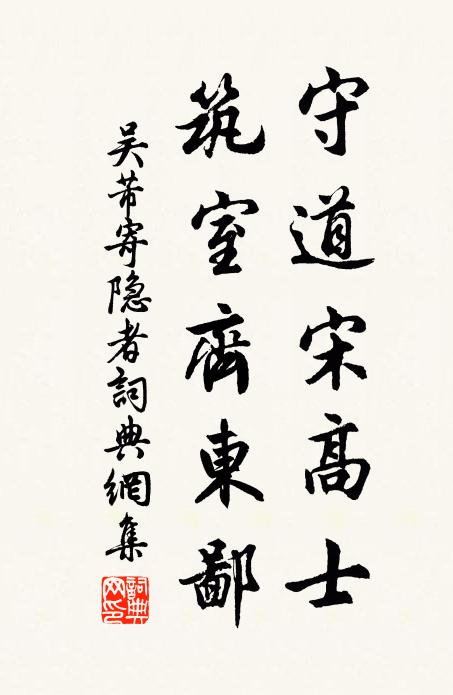 守道宋高士
筑室齊東鄙
吴芾寄隐者詞典網集
詞典网印